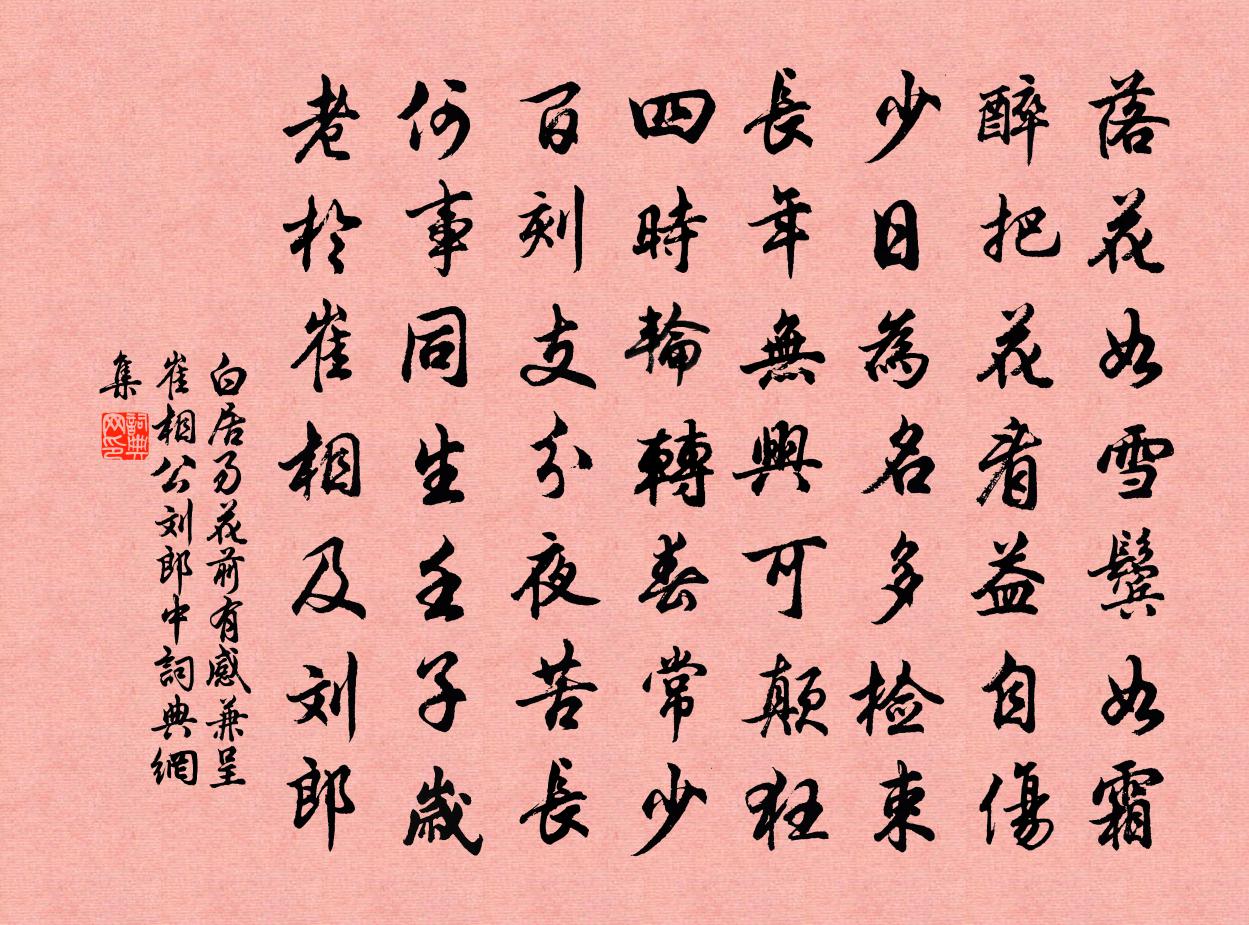 落花如雪鬓如霜
醉把花看益自傷
少日為名多檢束
長年無興可顛狂
四時輪轉春常少
百刻支分夜苦長
何事同生壬子歲
老於崔相及刘郎
白居易花前有感兼呈
崔相公刘郎中詞典網
集
詞典
网印